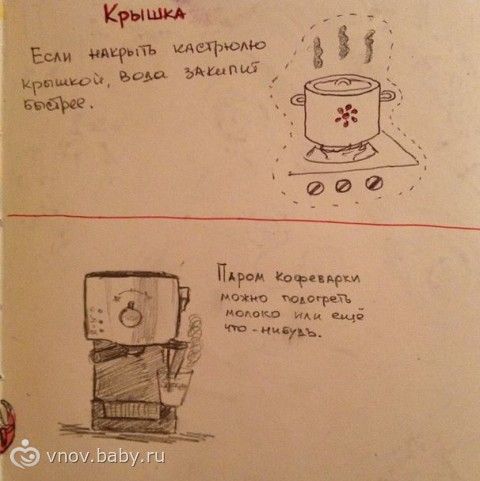 Крышка
Если накрыть кастрюлю
крышкой, вода закипит
быстрее.
Паром кофеварки
можно подогреть
молоко или ещё
что-нибудь.
vnov.baby.ru